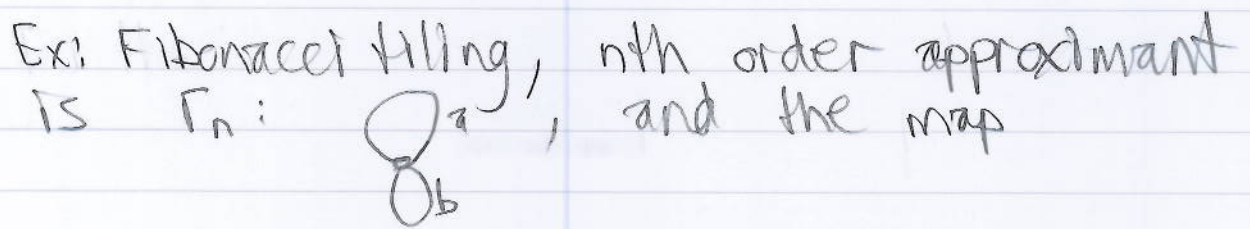 Ex: Fibonacci tiling, nth order approximant
is Γn: a, and the map
b